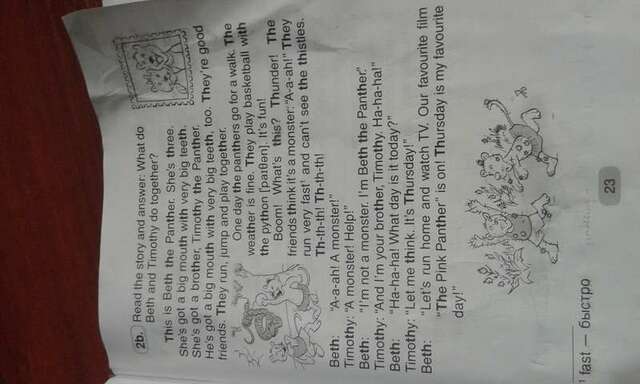 2b. Read the story and answer: What do
Beth and Timothy do together?
This is Beth the Panther. She's three.
She's got a big mouth with very big teeth.
She's got a brother, Timothy the Panther.
He's got a big mouth with very big teeth, too. They're good
friends. They run, jump and play together.
One day the panthers go for a walk. The
weather is fine. They play basketball with
the python ['paɪθən]. It's fun!
Boom! What's this? Thunder! The
friends think it's a monster: "A-a-ah!" They
run very fast¹ and can't see the thistles.
Th-th-th! Th-th-th!
Beth: "A-a-ah! A monster!"
Timothy: "A monster! Help!"
Beth: "I'm not a monster. I'm Beth the Panther."
Timothy: "And I'm your brother, Timothy. Ha-ha-ha!"
Beth: "Ha-ha-ha! What day is it today?"
Timothy: "Let me think. It's Thursday!"
Beth: "Let's run home and watch TV. Our favourite film
"The Pink Panther" is on! Thursday is my favourite
day!"
¹ fast — быстро
23